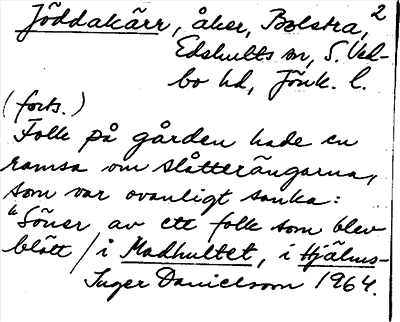 Jöddakärr, åker, Bolstra, 2
Edshults sn, S. Ved-
bo hd, Jönk. l.
(forts.)
Folk på gården hade en
ramsa om slåtterängarna,
som var ovanligt sanka:
"Söner av ett folk som blev
blött / å Madhultet, i Hjälms-
Inger Danielsson 1964.